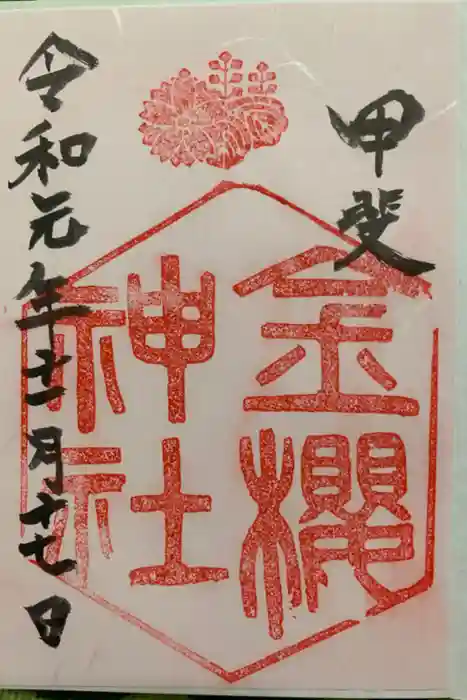 甲斐
金櫻
神社
令和元年十一月十七日